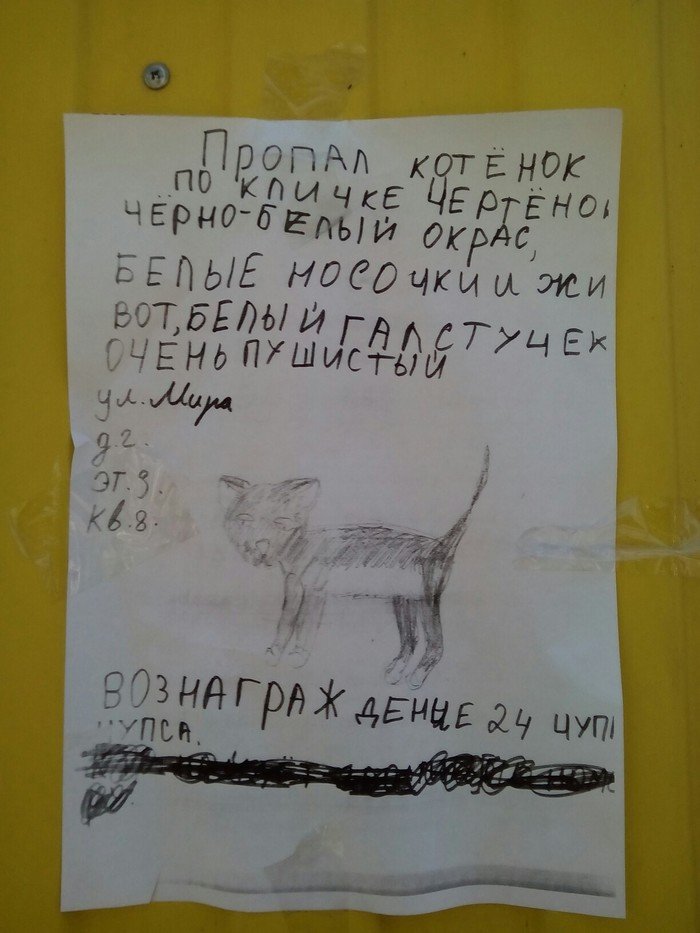 ПРОПАЛ КОТЁНОК
ПО КЛИЧКЕ ЧЕРТЁНО
ЧЁРНО-БЕЛЫЙ ОКРАС,
БЕЛЫЕ НОСОЧКИ И ЖИ
ВОТ, БЕЛЫЙ ГАЛСТУЧЕК
ОЧЕНЬ ПУШИСТЫЙ
ул. Мира
д.2.
эт.9.
кв.8.
ВОЗНАГРАЖДЕНИЕ 24 ЧУП
ЧУПСА.